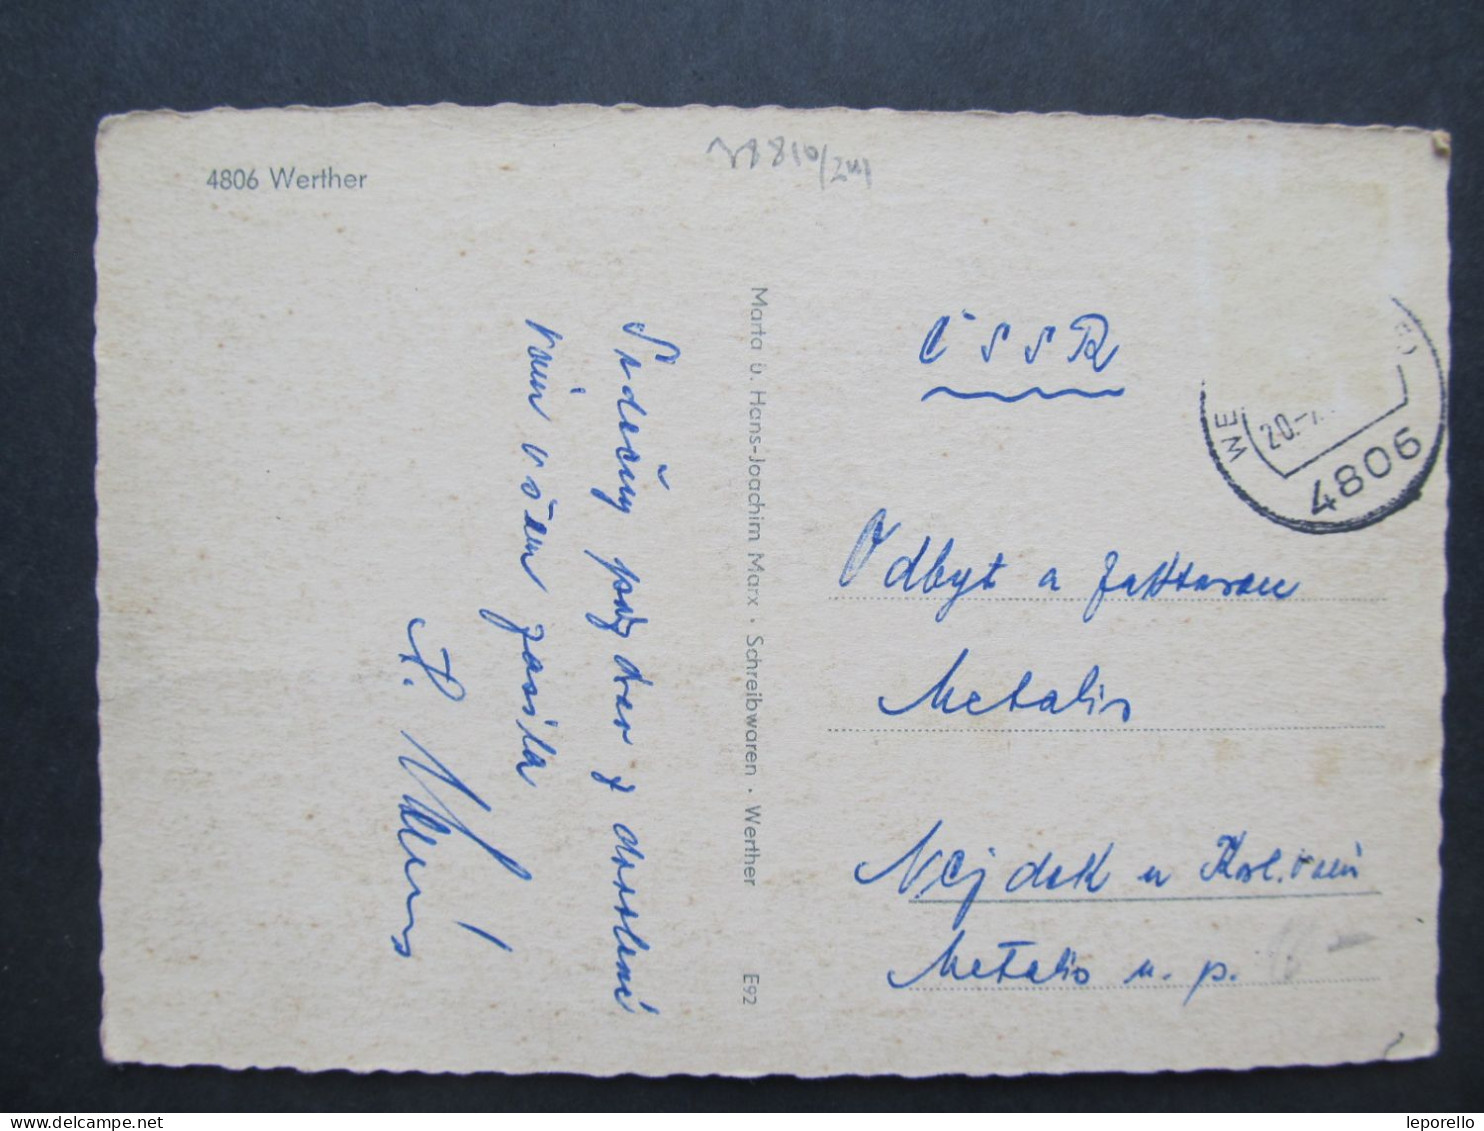 4806 Werther
Srdečný pozdrav z dovolené
vám všem zasílá
Marta u. Hans-Joachim Marx · Schreibwaren · Werther
E92
ČSSR
WE
20.-7.
4806
Odbyt a fakturace
Metalis
Nejdek u Karl. Varů
Metalis n. p.
leporello